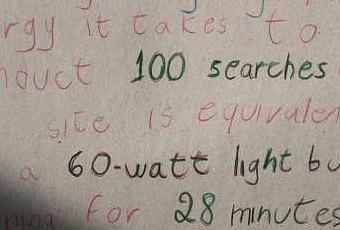 rgy it takes to
duct 100 searches
site is equivalen
a 60-watt light bu
ning for 28 minutes